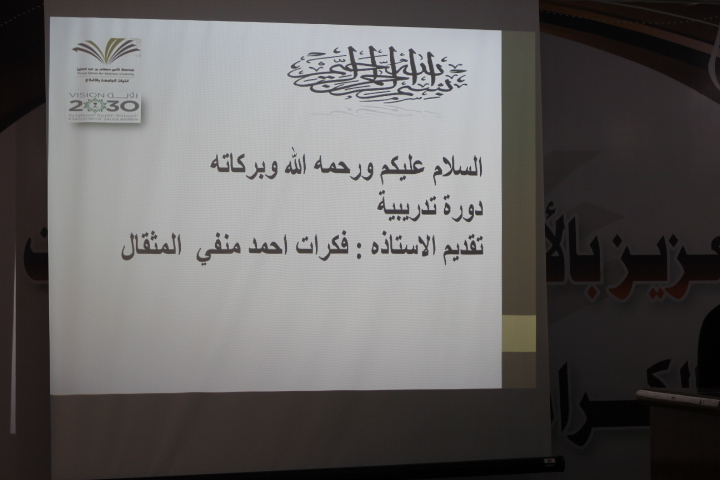 بسم الله الرحمن الرحيم
VISION رؤيـــة
2030
السلام عليكم ورحمه الله وبركاته
دورة تدريبية
تقديم الاستاذه : فكرات احمد منفي المثقال